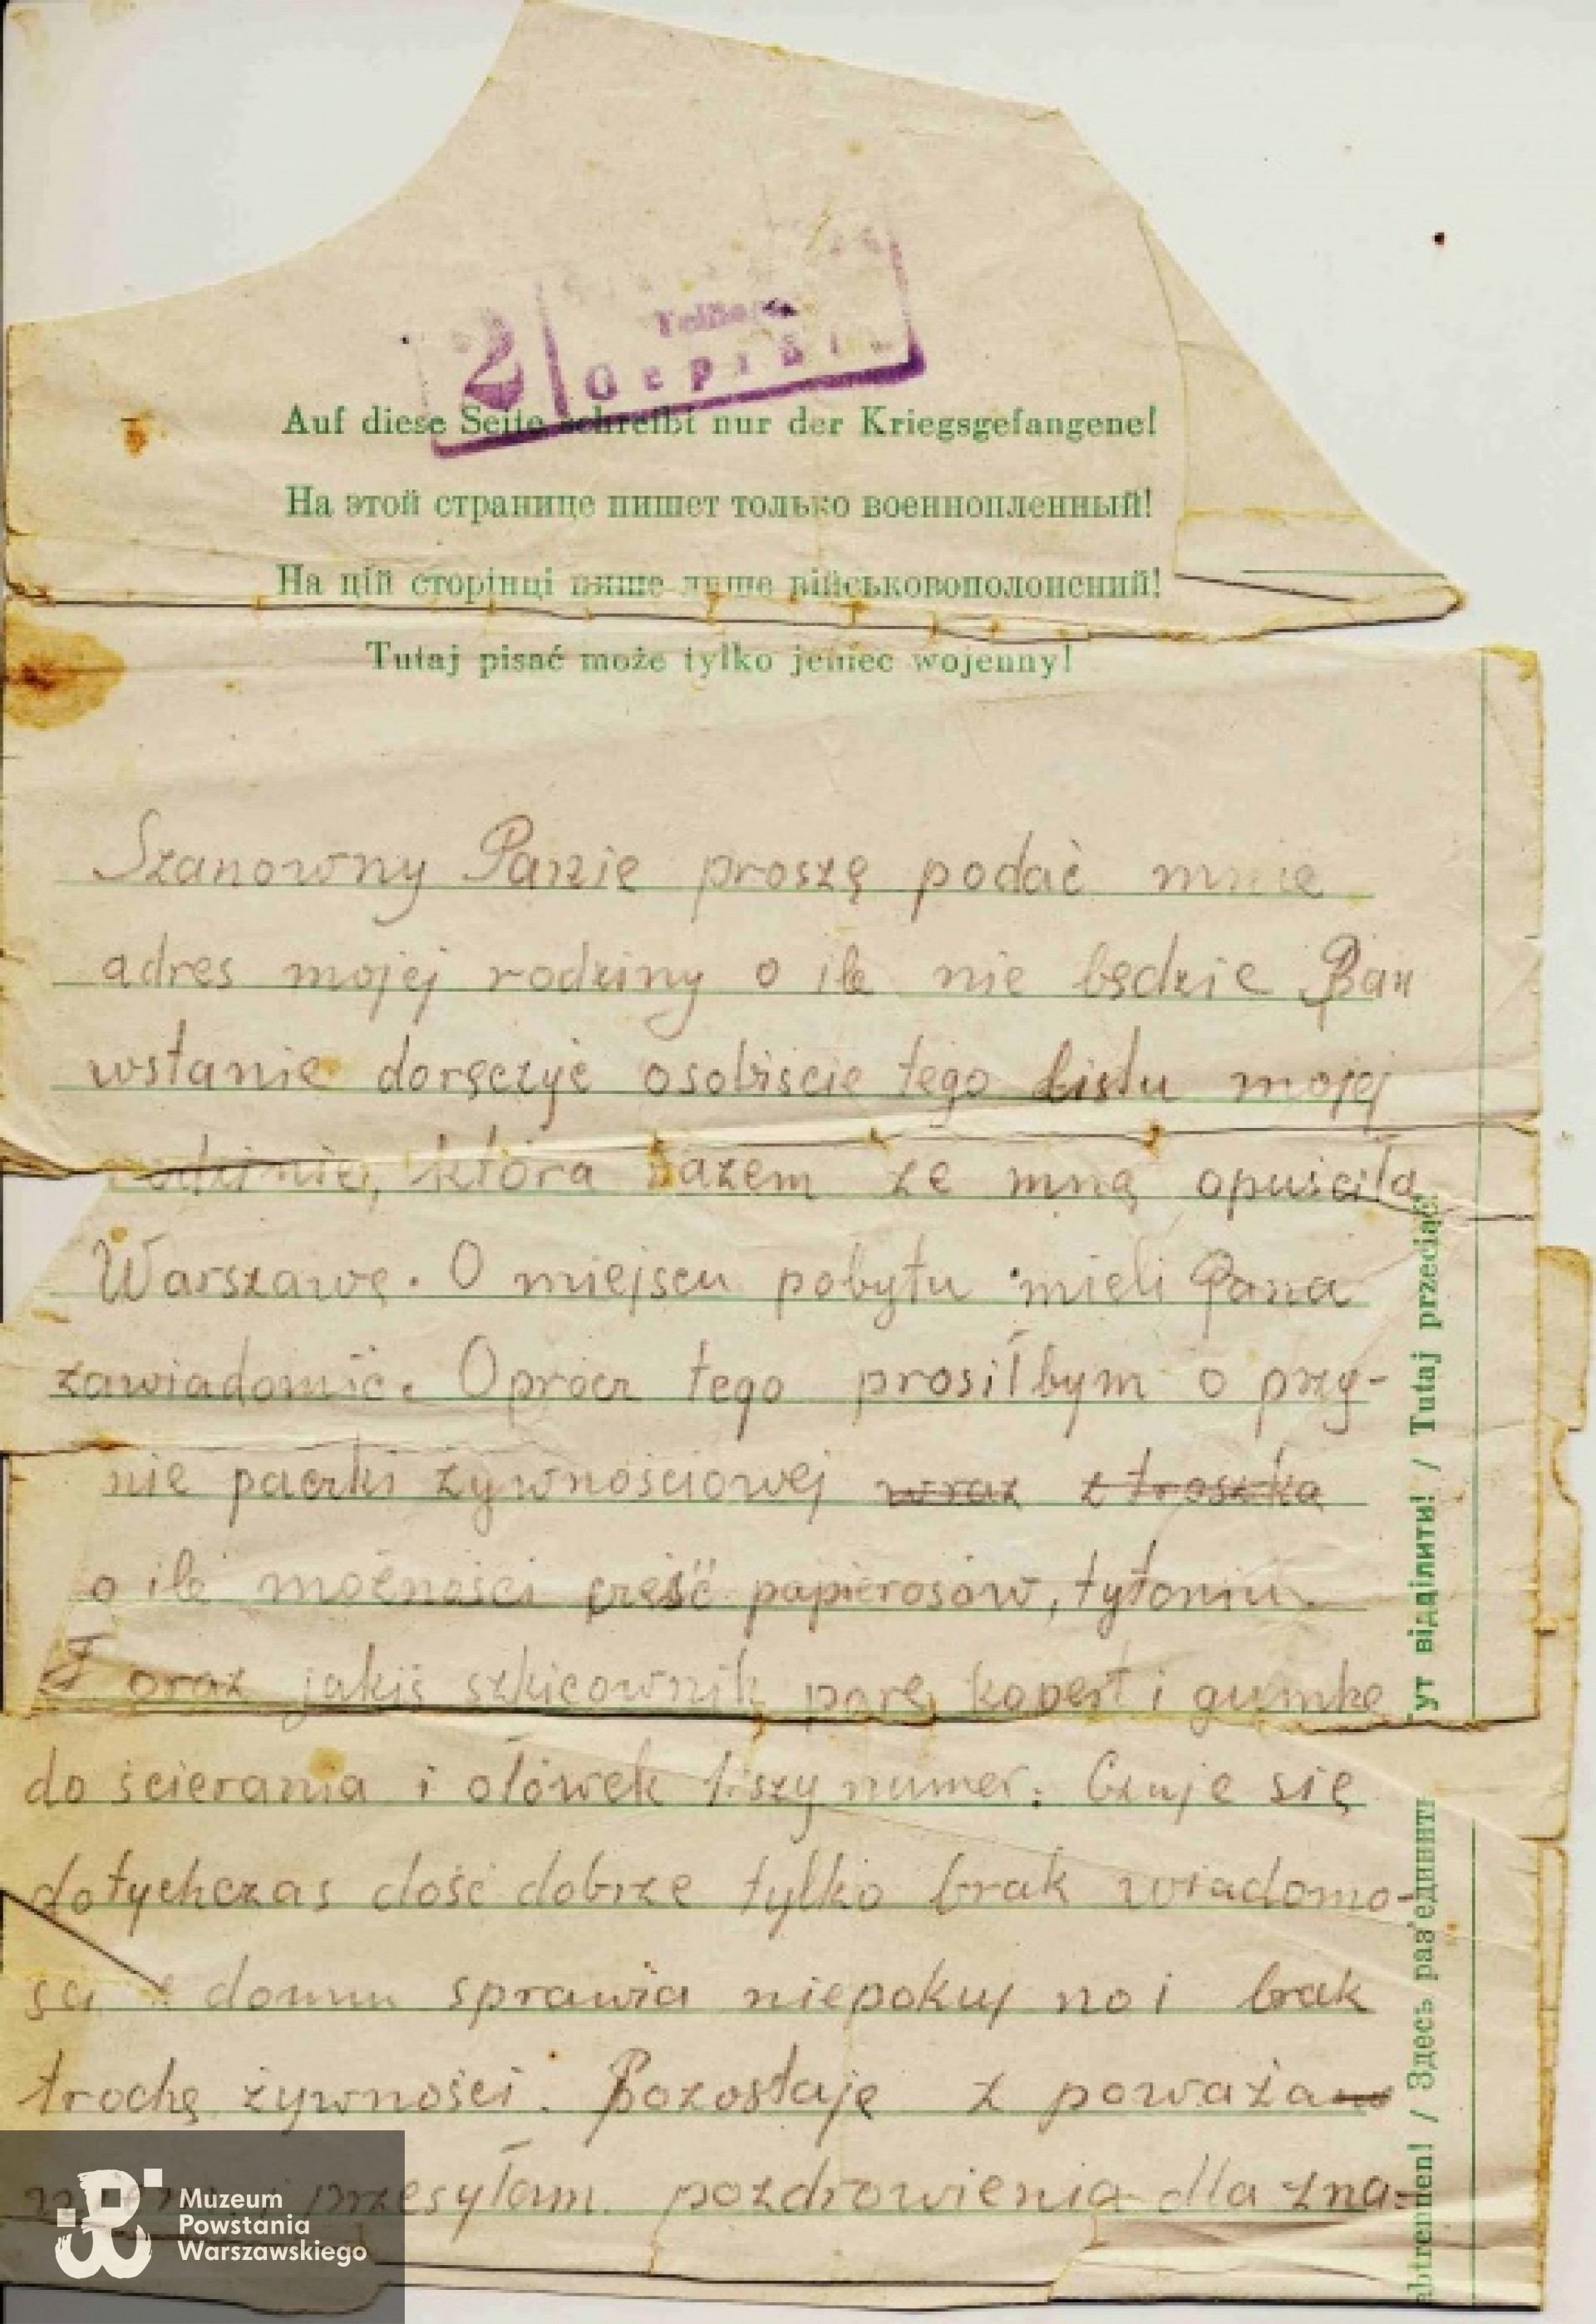 2
Geprüft
Auf diese Seite schreibt nur der Kriegsgefangene!
На этой странице пишет только военнопленный!
На цій сторінці пише лише військовополонений!
Tutaj pisać może tylko jeniec wojenny!
Szanowny Panie proszę podać mnie
adres mojej rodziny o ile nie będzie Pan
wstanie doręczyć osobiście tego listu mojej
rodzinie, która razem ze mną opuściła
Warszawę. O miejscu pobytu mieli Pana
zawiadomić. Oprócz tego prosiłbym o przy-
nie paczki żywnościowej wraz z troszka
o ile możności cześć papierosów, tytoniu
oraz jakiś szkicownik parę kopert i gumkę
do ścierania i ołówek numer. Czuje się
dotychczas dość dobrze tylko brak wiadomo-
sci z domu sprawia niepokuj no i brak
trochę żywności. Pozostaję z poważa
i przesyłam pozdrowienia dla zna-
Tutaj przeciąć!
ут відділити! /
/ Здесь раз'единить
abtrennen!
Muzeum
Powstania
Warszawskiego